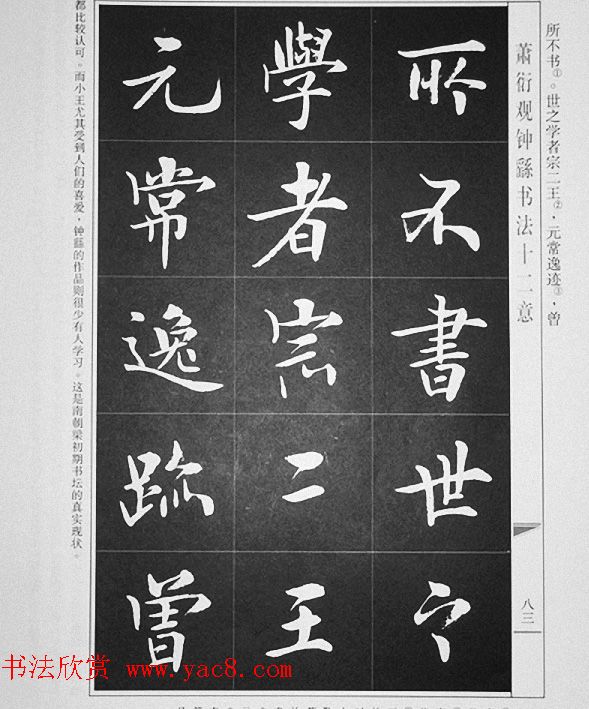 所不书①。世之学者宗二王②，元常逸迹③，曾
萧衍观钟繇书法十二意
八三
所不書世之
學者宗二王
元常逸跡曾
都比较认可。而小王尤其受到人们的喜爱，钟繇的作品则很少有人学习。这是南朝梁初期书坛的真实现状。
书法欣赏 www.yac8.com